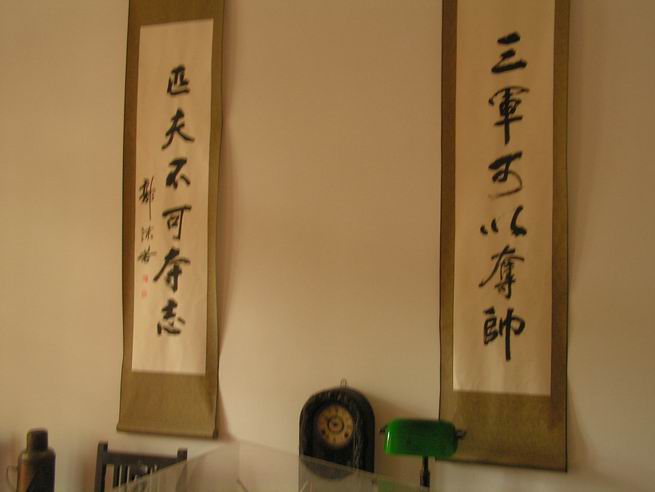 三軍可以奪帥
匹夫不可夺志
郭沫若